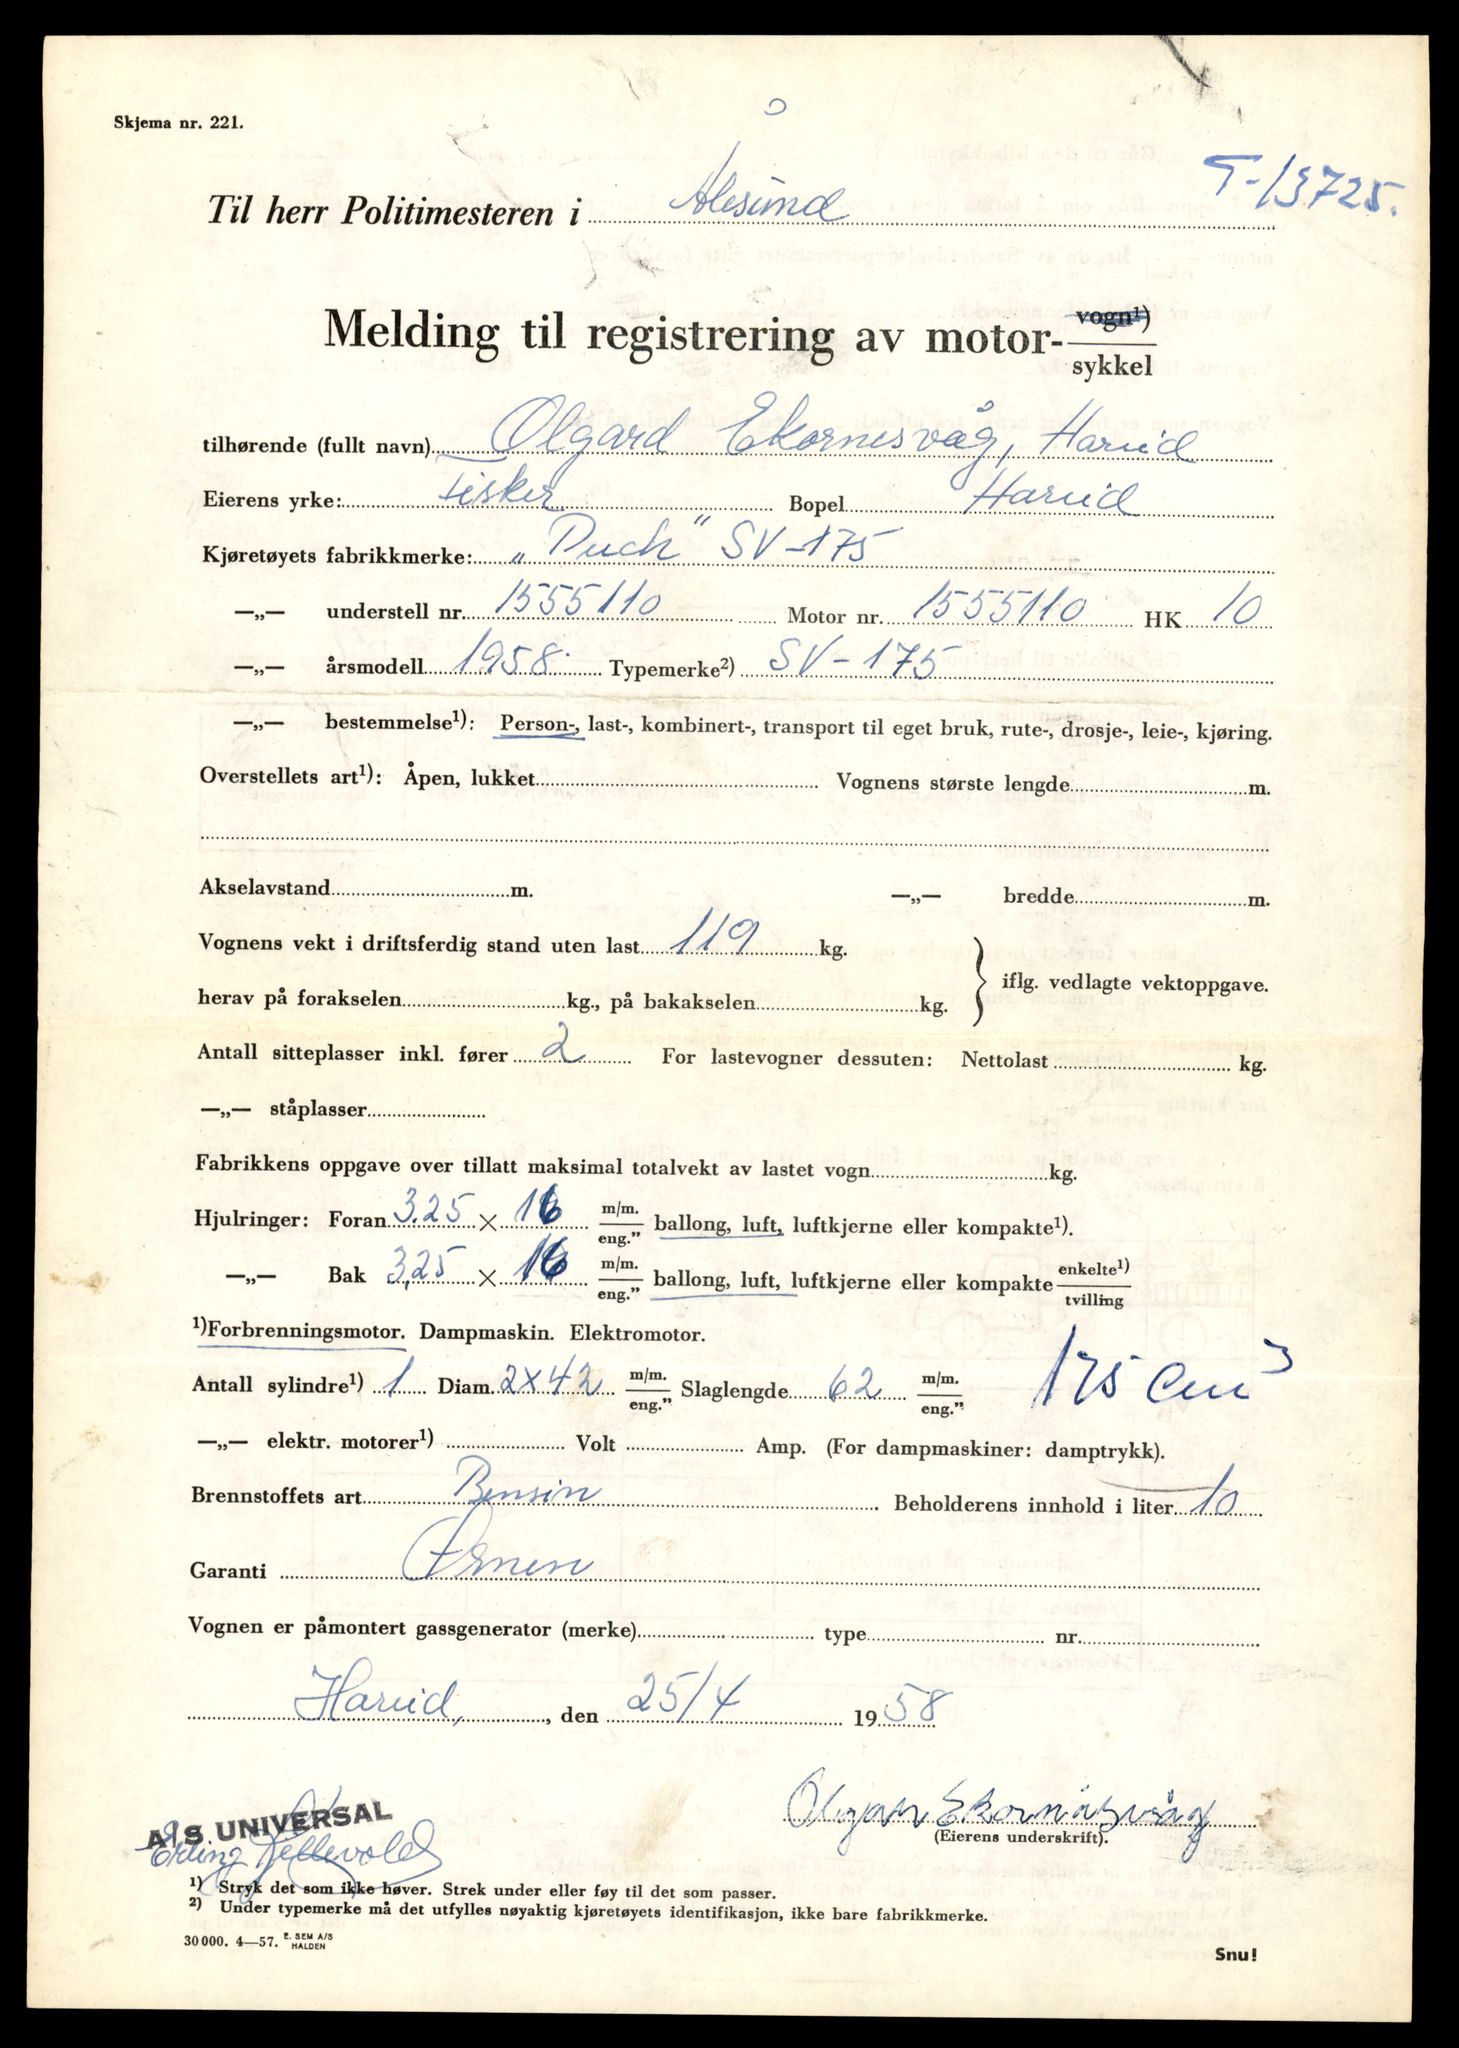 Skjema nr. 221.
T-13725.
Til herr Politimesteren i Ålesund
Melding til registrering av motor- vogn¹) / sykkel
tilhørende (fullt navn) Olgard Ekornesvåg, Hareid
Eierens yrke: Fisker Bopel Hareid
Kjøretøyets fabrikkmerke: „Puch" SV-175
—„— understell nr. 1555110 Motor nr. 1555110 HK 10
—„— årsmodell 1958. Typemerke²) SV-175
—„— bestemmelse¹): Person-, last-, kombinert-, transport til eget bruk, rute-, drosje-, leie-, kjøring.
Overstellets art¹): Åpen, lukket Vognens største lengde m.
Akselavstand m. —„— bredde m.
Vognens vekt i driftsferdig stand uten last 119 kg.
herav på forakselen kg., på bakakselen kg. } iflg. vedlagte vektoppgave.
Antall sitteplasser inkl. fører 2 For lastevogner dessuten: Nettolast kg.
—„— ståplasser
Fabrikkens oppgave over tillatt maksimal totalvekt av lastet vogn kg.
Hjulringer: Foran 3.25 × 16 m/m. / eng." ballong, luft, luftkjerne eller kompakte¹).
—„— Bak 3,25 × 16 m/m. / eng." ballong, luft, luftkjerne eller kompakte enkelte¹) / tvilling
¹)Forbrenningsmotor. Dampmaskin. Elektromotor.
Antall sylindre¹) 1 Diam. 2×42 m/m. / eng." Slaglengde 62 m/m. / eng." 175 cm³
—„— elektr. motorer¹) Volt Amp. (For dampmaskiner: damptrykk).
Brennstoffets art Bensin Beholderens innhold i liter 10
Garanti Ørnen
Vognen er påmontert gassgenerator (merke) type nr.
Hareid, , den 25/4 1958
A/S UNIVERSAL
Erling
Olgar Ekornesvåg
(Eierens underskrift).
¹) Stryk det som ikke høver. Strek under eller føy til det som passer.
²) Under typemerke må det utfylles nøyaktig kjøretøyets identifikasjon, ikke bare fabrikkmerke.
30 000. 4—57. E. SEM A/S HALDEN
Snu!